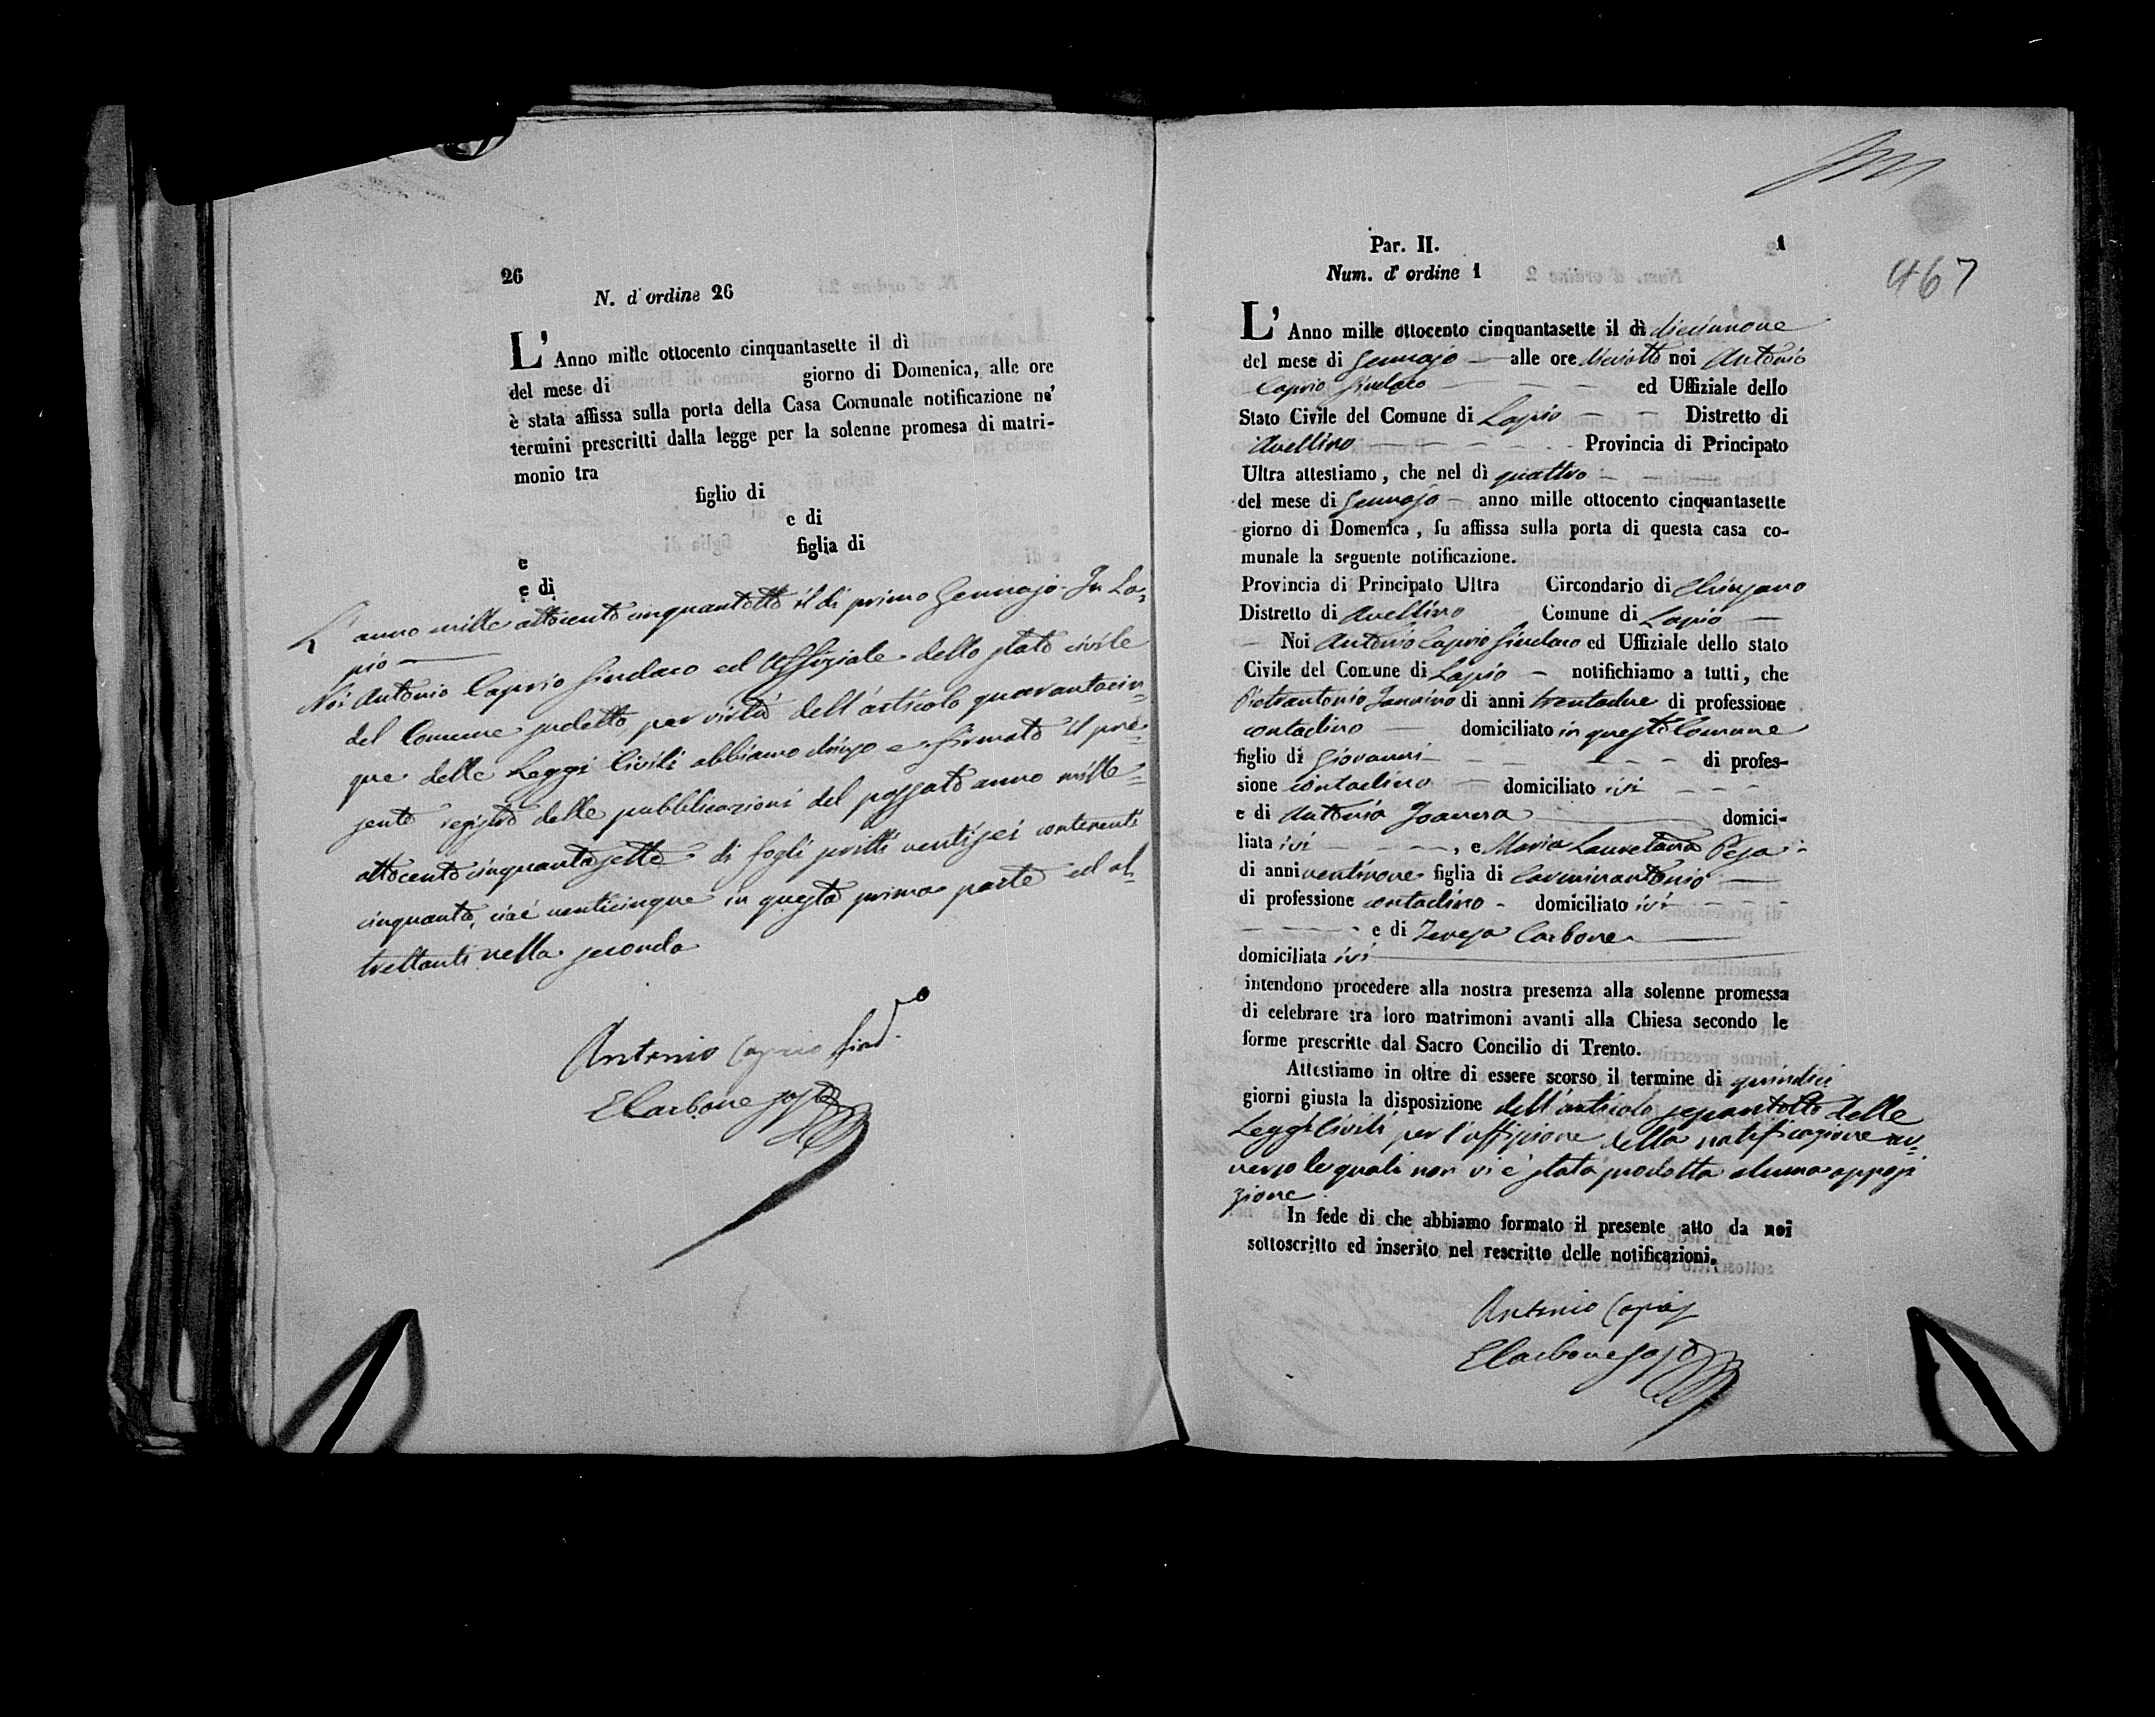 26
N. d'ordine 26
L' Anno mille ottocento cinquantasette il dì
del mese di giorno di Domenica, alle ore
è stata affissa sulla porta della Casa Comunale notificazione ne'
termini prescritti dalla legge per la solenne promesa di matri-
monio tra
figlio di
e di
e figlia di
e di
L'anno mille ottocento cinquantotto il dì primo Gennajo In La=
pio
Noi Antonio Caprio Sindaco ed Uffiziale dello stato civile
del Comune sudetto, per virtù dell'articolo quarantacin=
que delle Leggi Civili abbiamo chiuso e firmato il pre=
sente registro delle pubblicazioni del passato anno mille=
ottocento cinquantasette di fogli scritti ventisei contenenti
cinquanta, cioè venticinque in questa prima parte ed al=
trettanti nella seconda
Antonio Caprio Sind.co
E Carbone
Par. II. 1
Num. d'ordine 1
467
L' Anno mille ottocento cinquantasette il dì diciannove
del mese di Gennajo — alle ore diciotto noi Antonio
Caprio Sindaco — ed Uffiziale dello
Stato Civile del Comune di Lapio — Distretto di
Avellino — Provincia di Principato
Ultra attestiamo, che nel dì quattro —
del mese di Gennajo — anno mille ottocento cinquantasette
giorno di Domenica, fu affissa sulla porta di questa casa co-
munale la seguente notificazione.
Provincia di Principato Ultra Circondario di Chiusano
Distretto di Avellino Comune di Lapio —
— Noi Antonio Caprio Sindaco ed Uffiziale dello stato
Civile del Comune di Lapio — notifichiamo a tutti, che
Pietrantonio Iannino di anni trentadue di professione
contadino — domiciliato in questo Comune
figlio di Giovanni — di profes-
sione contadino — domiciliato ivi —
e di Antonia — domici-
liata ivi —, e Maria Lauretana Pesa
di anni ventinove figlia di Carminantonio —
di professione contadino - domiciliato ivi —
— e di Teresa Carbone —
domiciliata ivi —
intendono procedere alla nostra presenza alla solenne promessa
di celebrare tra loro matrimoni avanti alla Chiesa secondo le
forme prescritte dal Sacro Concilio di Trento.
Attestiamo in oltre di essere scorso il termine di quindici
giorni giusta la disposizione dell'articolo sessantotto delle
Leggi Civili per l'affissione della notificazione av=
verso le quali non vi è stata prodotta alcuna opposi
zione
In fede di che abbiamo formato il presente atto da noi
sottoscritto ed inserito nel rescritto delle notificazioni.
Antonio Caprio
E Carbone